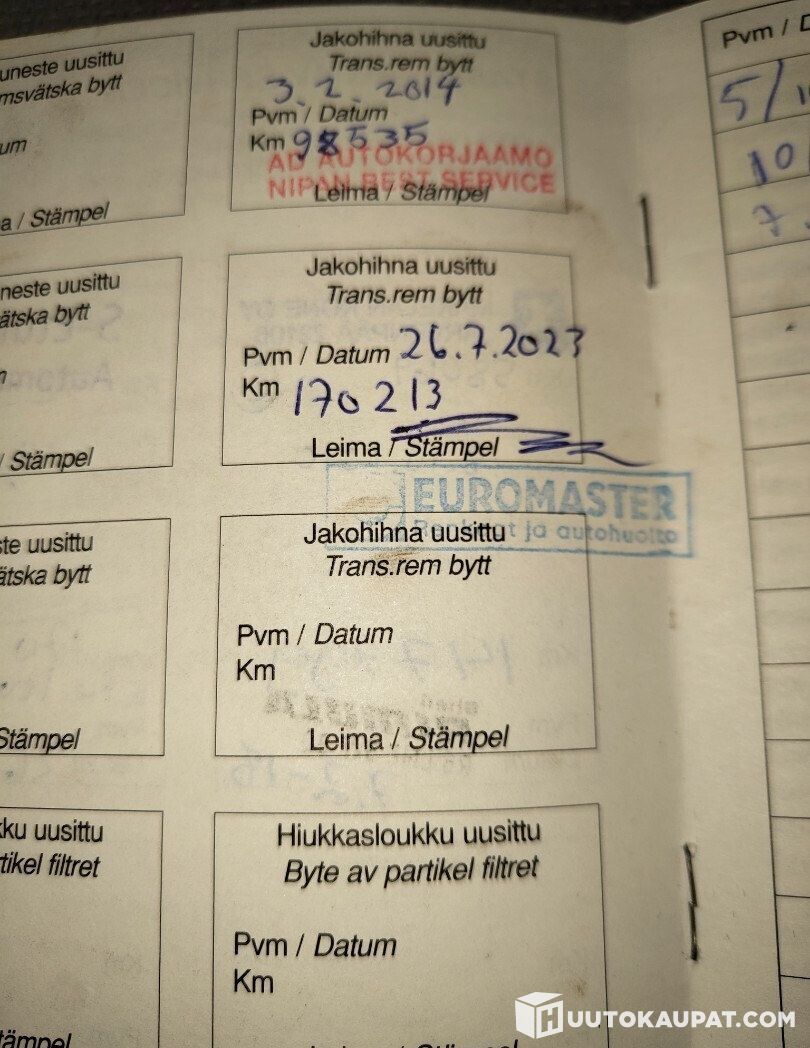 uneste uusittu
msvätska bytt
um
a / Stämpel
neste uusittu
vätska bytt
/ Stämpel
ste uusittu
ätska bytt
Stämpel
kku uusittu
tikel filtret
tämpel
Jakohihna uusittu
Trans.rem bytt
3.2.2014
Pvm / Datum
Km 98535
AD AUTOKORJAAMO
NIPAN BEST SERVICE
Leima / Stämpel
Jakohihna uusittu
Trans.rem bytt
Pvm / Datum 26.7.2023
Km 170213
Leima / Stämpel
EUROMASTER
Renkaat ja autohuolto
Jakohihna uusittu
Trans.rem bytt
Pvm / Datum
Km
Leima / Stämpel
Hiukkasloukku uusittu
Byte av partikel filtret
Pvm / Datum
Km
Pvm / D
5/1
10
7.
HUUTOKAUPAT.COM